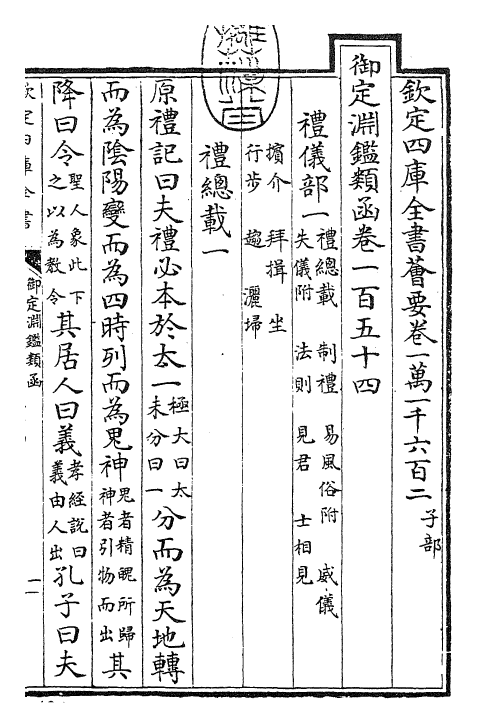 欽定四庫全書薈要卷一萬一千六百二 子部
御定淵鑑類函卷一百五十四
禮儀部一 禮總載 制禮 易風俗附 威儀
失儀附 法則 見君 士相見
擯介 拜揖 坐
行步 趨 灑埽
禮總載一
原禮記曰夫禮必本於太一 極大曰太未分曰一 分而為天地轉
而為陰陽變而為四時列而為鬼神 鬼者精魄所歸神者引物而出 其
降曰令 聖人象此下之以為教令 其居人曰義 孝經說曰義由人出 孔子曰夫
欽定四庫全書
御定淵鑑類函
一